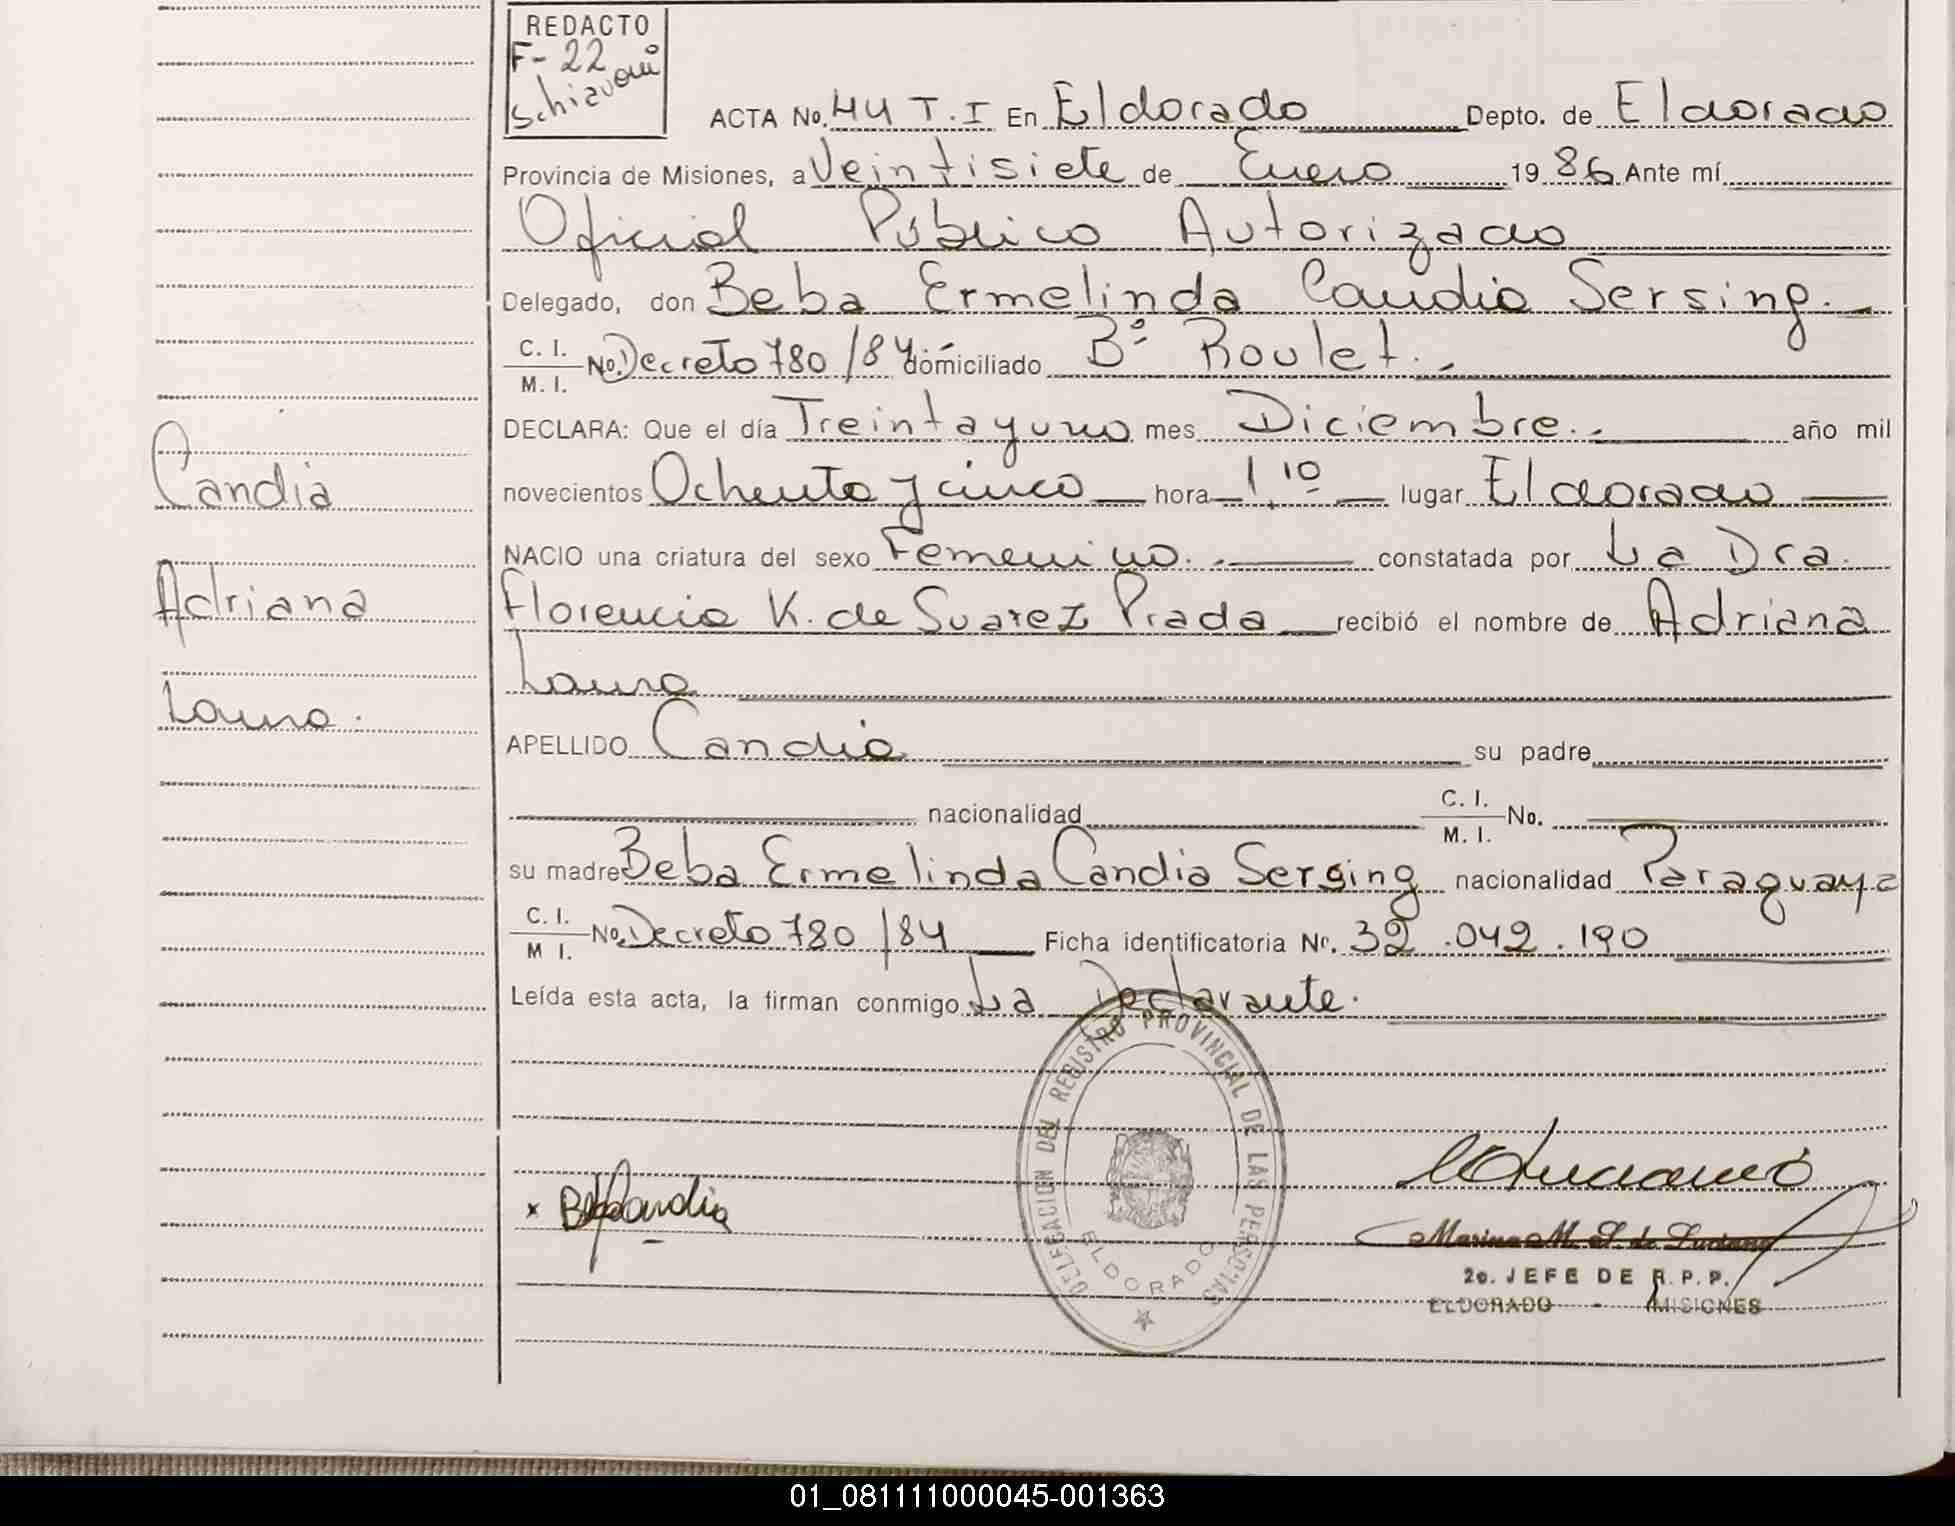 REDACTO
F-22
Schiavoni
ACTA No. 44 T.I En Eldorado Depto. de Eldorado
Provincia de Misiones, a Veintisiete de Enero 19 86 Ante mí
Oficial Público Autorizado
Delegado, don Beba Ermelinda Candia Sersing.
C. I.
M. I. No. Decreto 780/84.- domiciliado Bº Roulet.-
DECLARA: Que el día Treinta y uno mes Diciembre.- año mil
novecientos Ochenta y cinco hora 1,10 lugar Eldorado
NACIO una criatura del sexo Femenino.- constatada por La Dra.
Florencia K. de Suarez Prada recibió el nombre de Adriana
Laura
APELLIDO Candia su padre
nacionalidad C. I.
M. I. No.
su madre Beba Ermelinda Candia Sersing nacionalidad Paraguaya
C. I.
M I. No. Decreto 780/84 Ficha identificatoria Nº. 32.042.190
Leída esta acta, la firman conmigo La Declarante.
Candia
Adriana
Laura.
DELEGACION DEL REGISTRO PROVINCIAL DE LAS PERSONAS
ELDORADO
x Candia
Marina M. S. de Luciano
2o. JEFE DE R.P.P.
ELDORADO - MISIONES
01_081111000045-001363